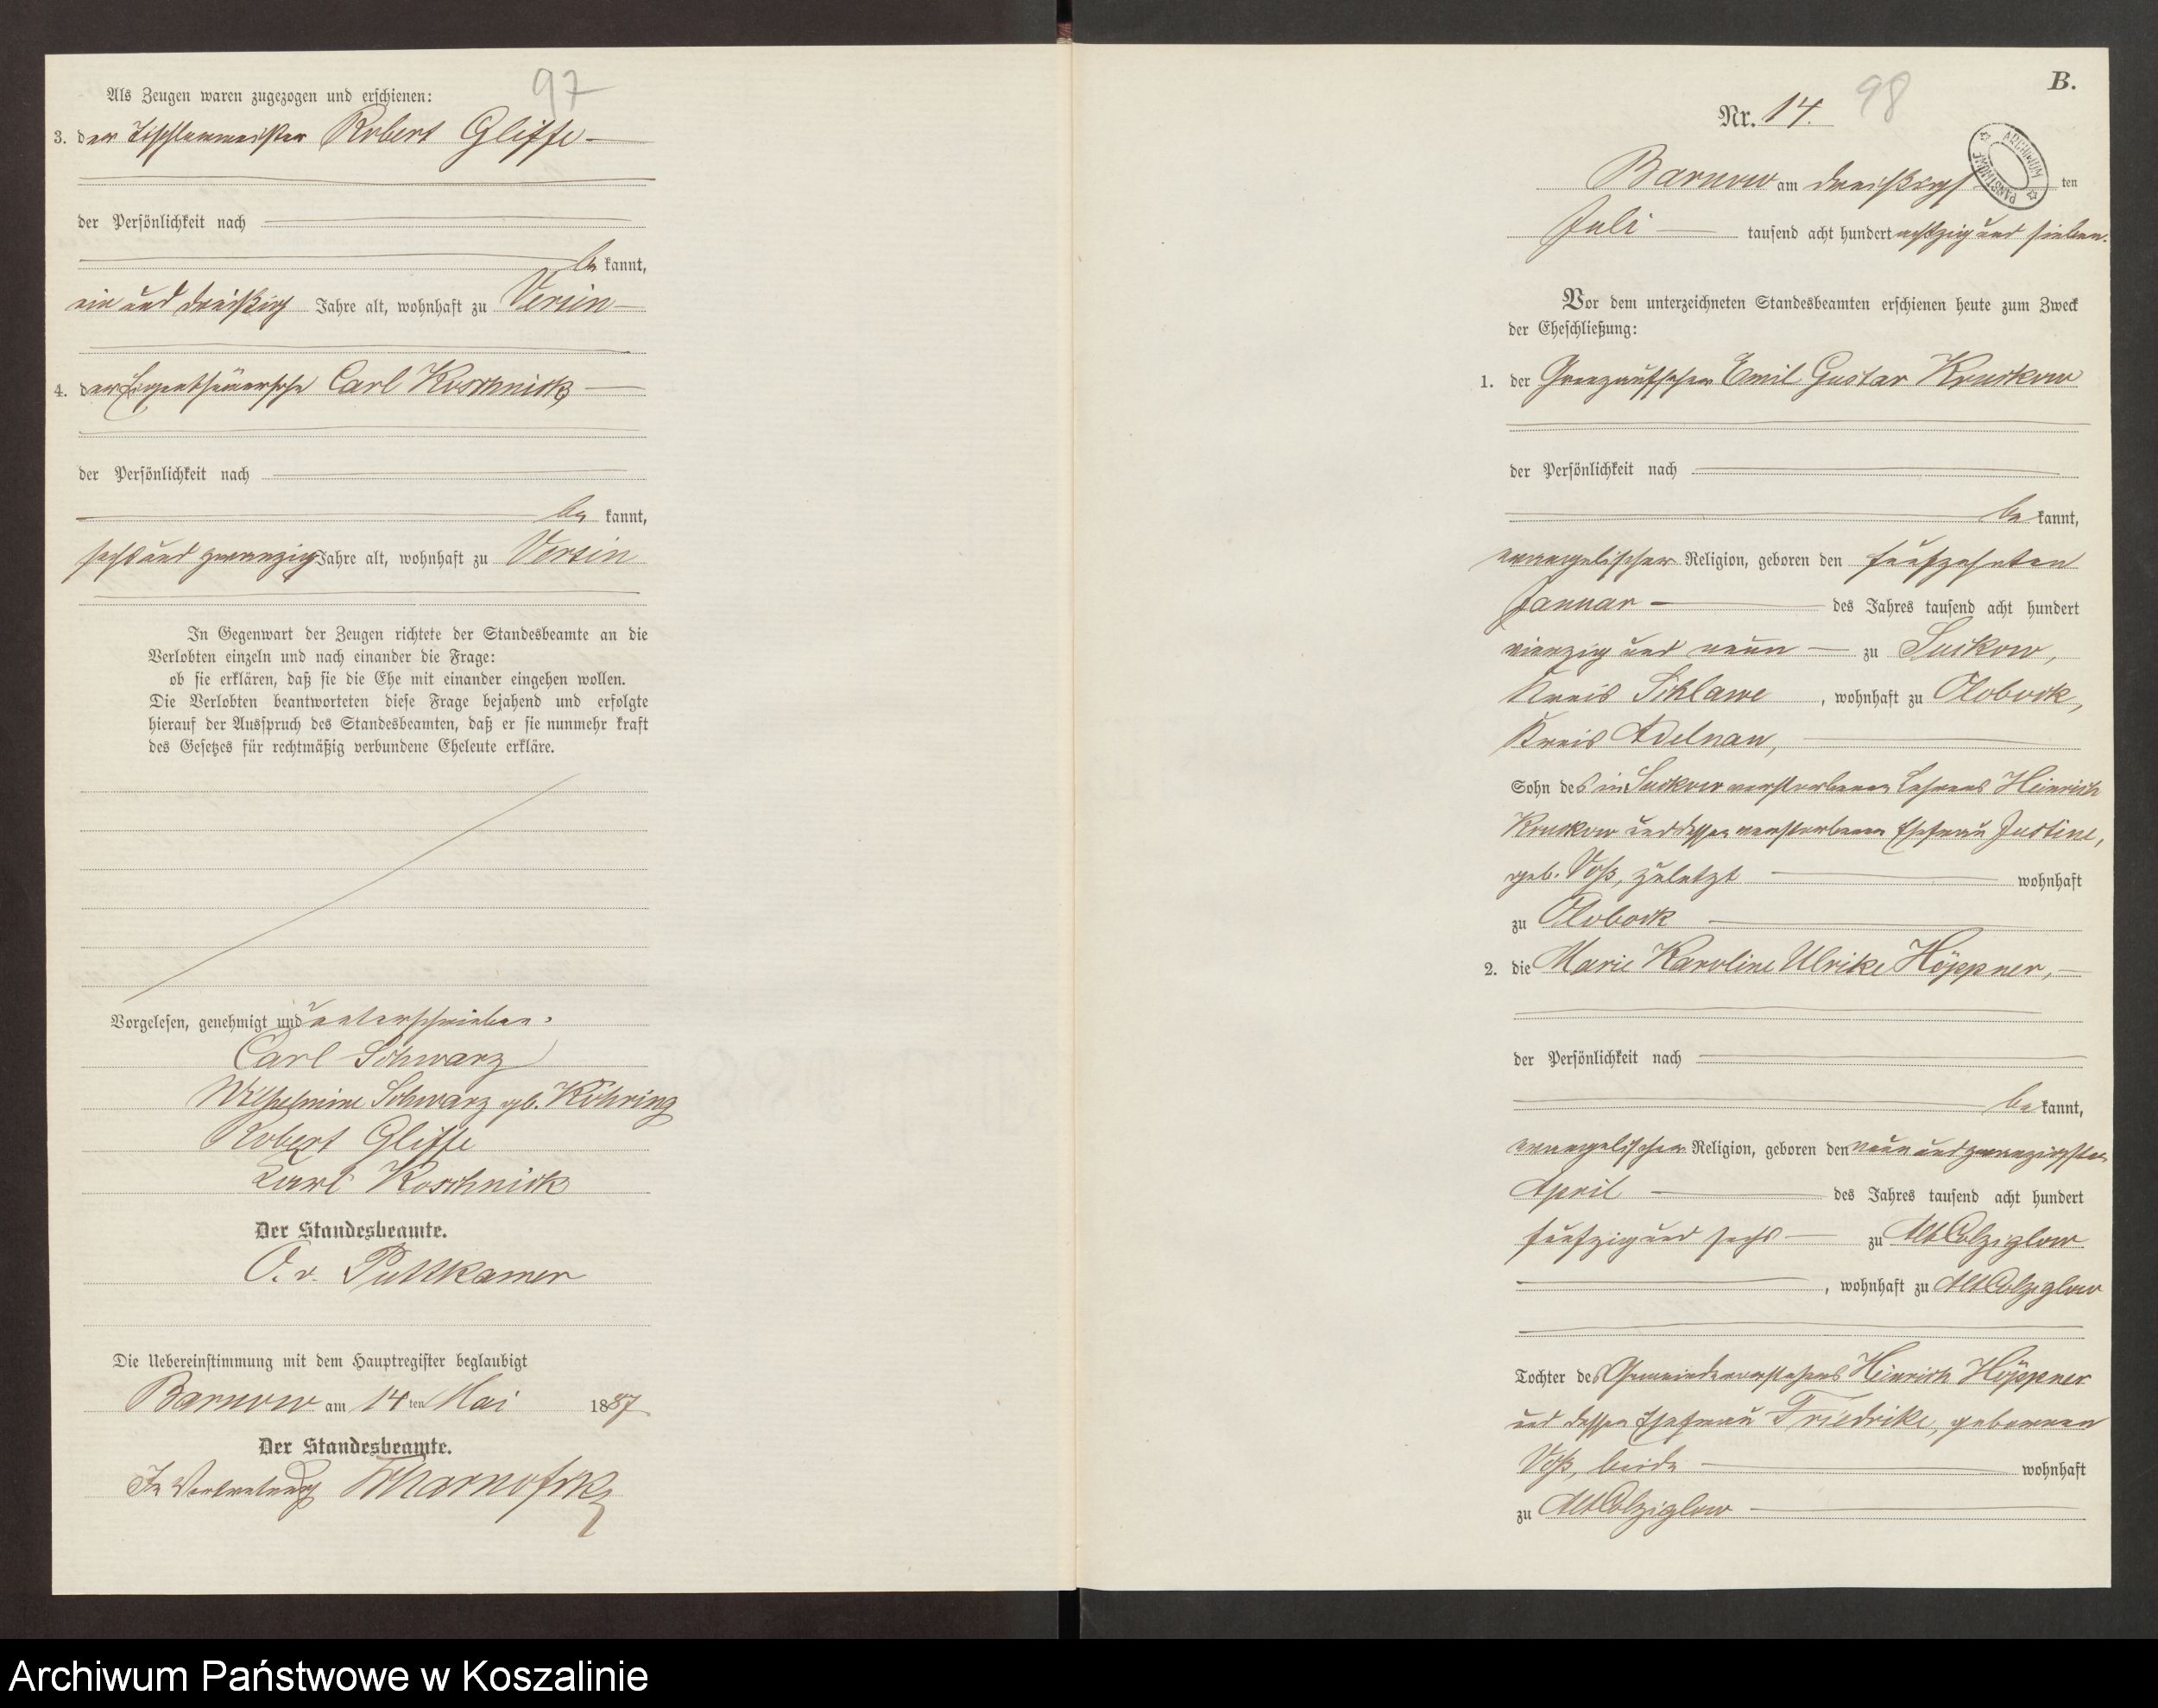 97
Als Zeugen waren zugezogen und erschienen:
3. der Tischlermeister Robert Gliffe
der Persönlichkeit nach
be kannt,
ein und dreißig Jahre alt, wohnhaft zu Versin
4. der Eigenthümersohn Carl Koschnick
der Persönlichkeit nach
be kannt,
sechs und zwanzig Jahre alt, wohnhaft zu Versin
In Gegenwart der Zeugen richtete der Standesbeamte an die
Verlobten einzeln und nach einander die Frage:
ob sie erklären, daß sie die Ehe mit einander eingehen wollen.
Die Verlobten beantworteten diese Frage bejahend und erfolgte
hierauf der Ausspruch des Standesbeamten, daß er sie nunmehr kraft
des Gesetzes für rechtmäßig verbundene Eheleute erkläre.
Vorgelesen, genehmigt und unterschrieben.
Carl Schwarz
Wilhelmine Schwarz geb. Köhring
Robert Gliffe
Karl Koschnick
Der Standesbeamte.
O. v. Puttkamer
Die Uebereinstimmung mit dem Hauptregister beglaubigt
Barnow am 14 ten Mai 1887
Der Standesbeamte.
In Vertretung
B.
Nr. 14. 98
ARCHIWUM PAŃSTWOWE
Barnow am dreißigs ten
Juli tausend acht hundert achtzig und sieben.
Vor dem unterzeichneten Standesbeamten erschienen heute zum Zweck
der Eheschließung:
1. der Grenzaufseher Emil Gustav Kruckow
der Persönlichkeit nach
be kannt,
evangelischer Religion, geboren den fünfzehnten
Januar des Jahres tausend acht hundert
vierzig und neun zu Suckow,
Kreis Schlawe, wohnhaft zu Olobock,
Kreis Adelnau,
Sohn des in Suckow verstorbenen Lehrers Heinrich
Kruckow und dessen verstorbenen Ehefrau Justine,
geb. Voß, zuletzt wohnhaft
zu Olobock
2. die Marie Karoline Ulrike Höppner,
der Persönlichkeit nach
be kannt,
evangelischer Religion, geboren den neun und zwanzigsten
April des Jahres tausend acht hundert
fünfzig und sechs zu Alt Colziglow
, wohnhaft zu Alt Colziglow
Tochter des Gemeindevorstehers Heinrich Höppner
und dessen Ehefrau Friedrike, geborenen
Voß, beide wohnhaft
zu Alt Colziglow
Archiwum Państwowe w Koszalinie